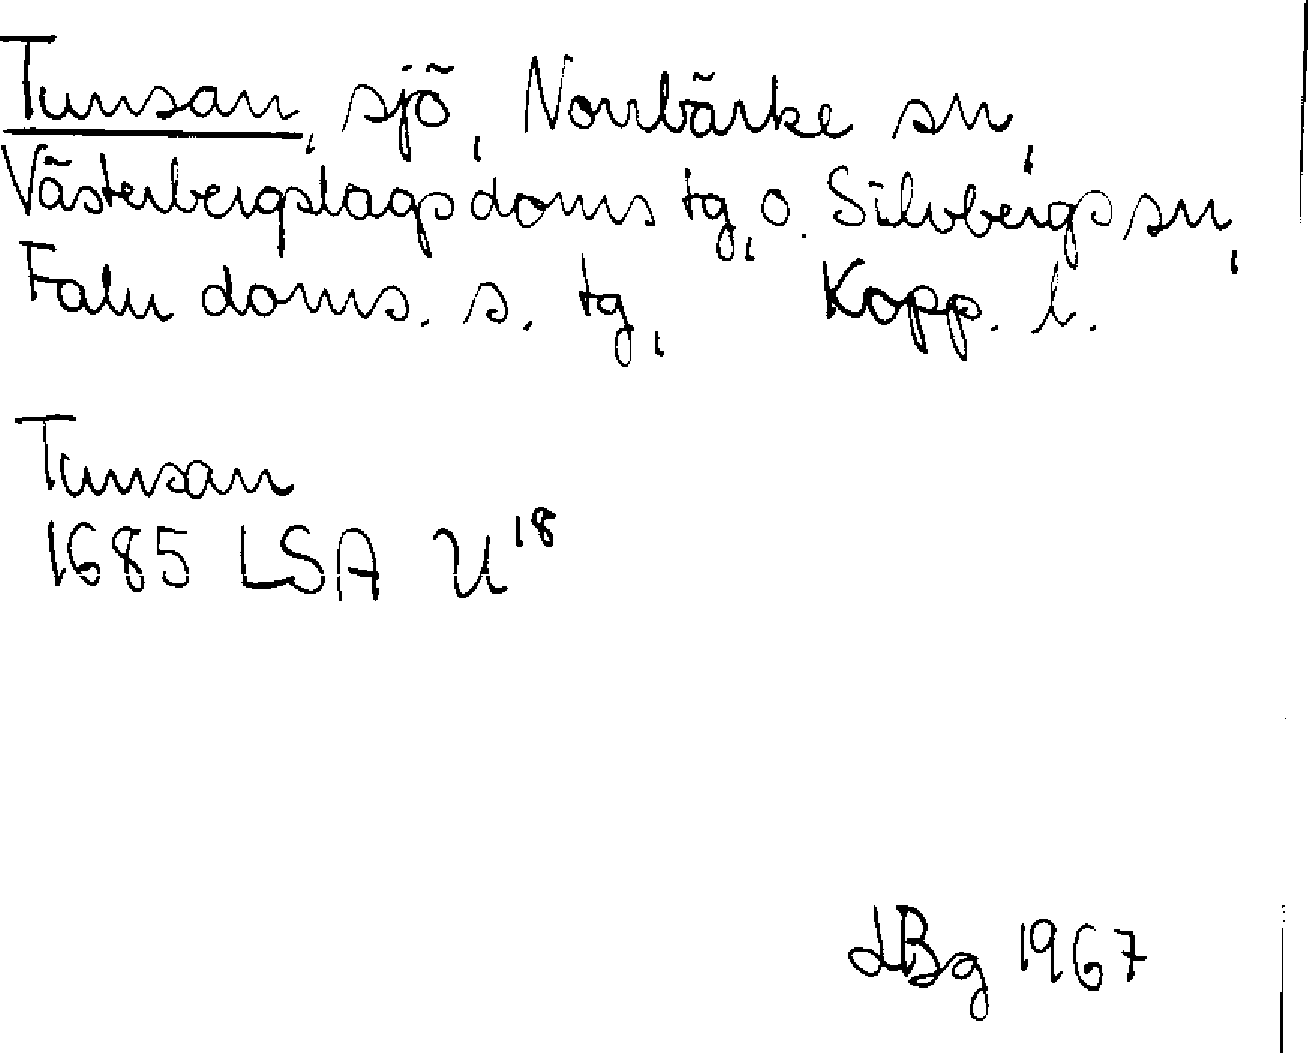 Tunsan, sjö, Norrbärke sn,
Västerbergslags doms tg, o. Silvbergs sn,
Falu doms. s. tg, Kopp. l.
Tunsan
1685 LSA U¹⁸
LBg 1967